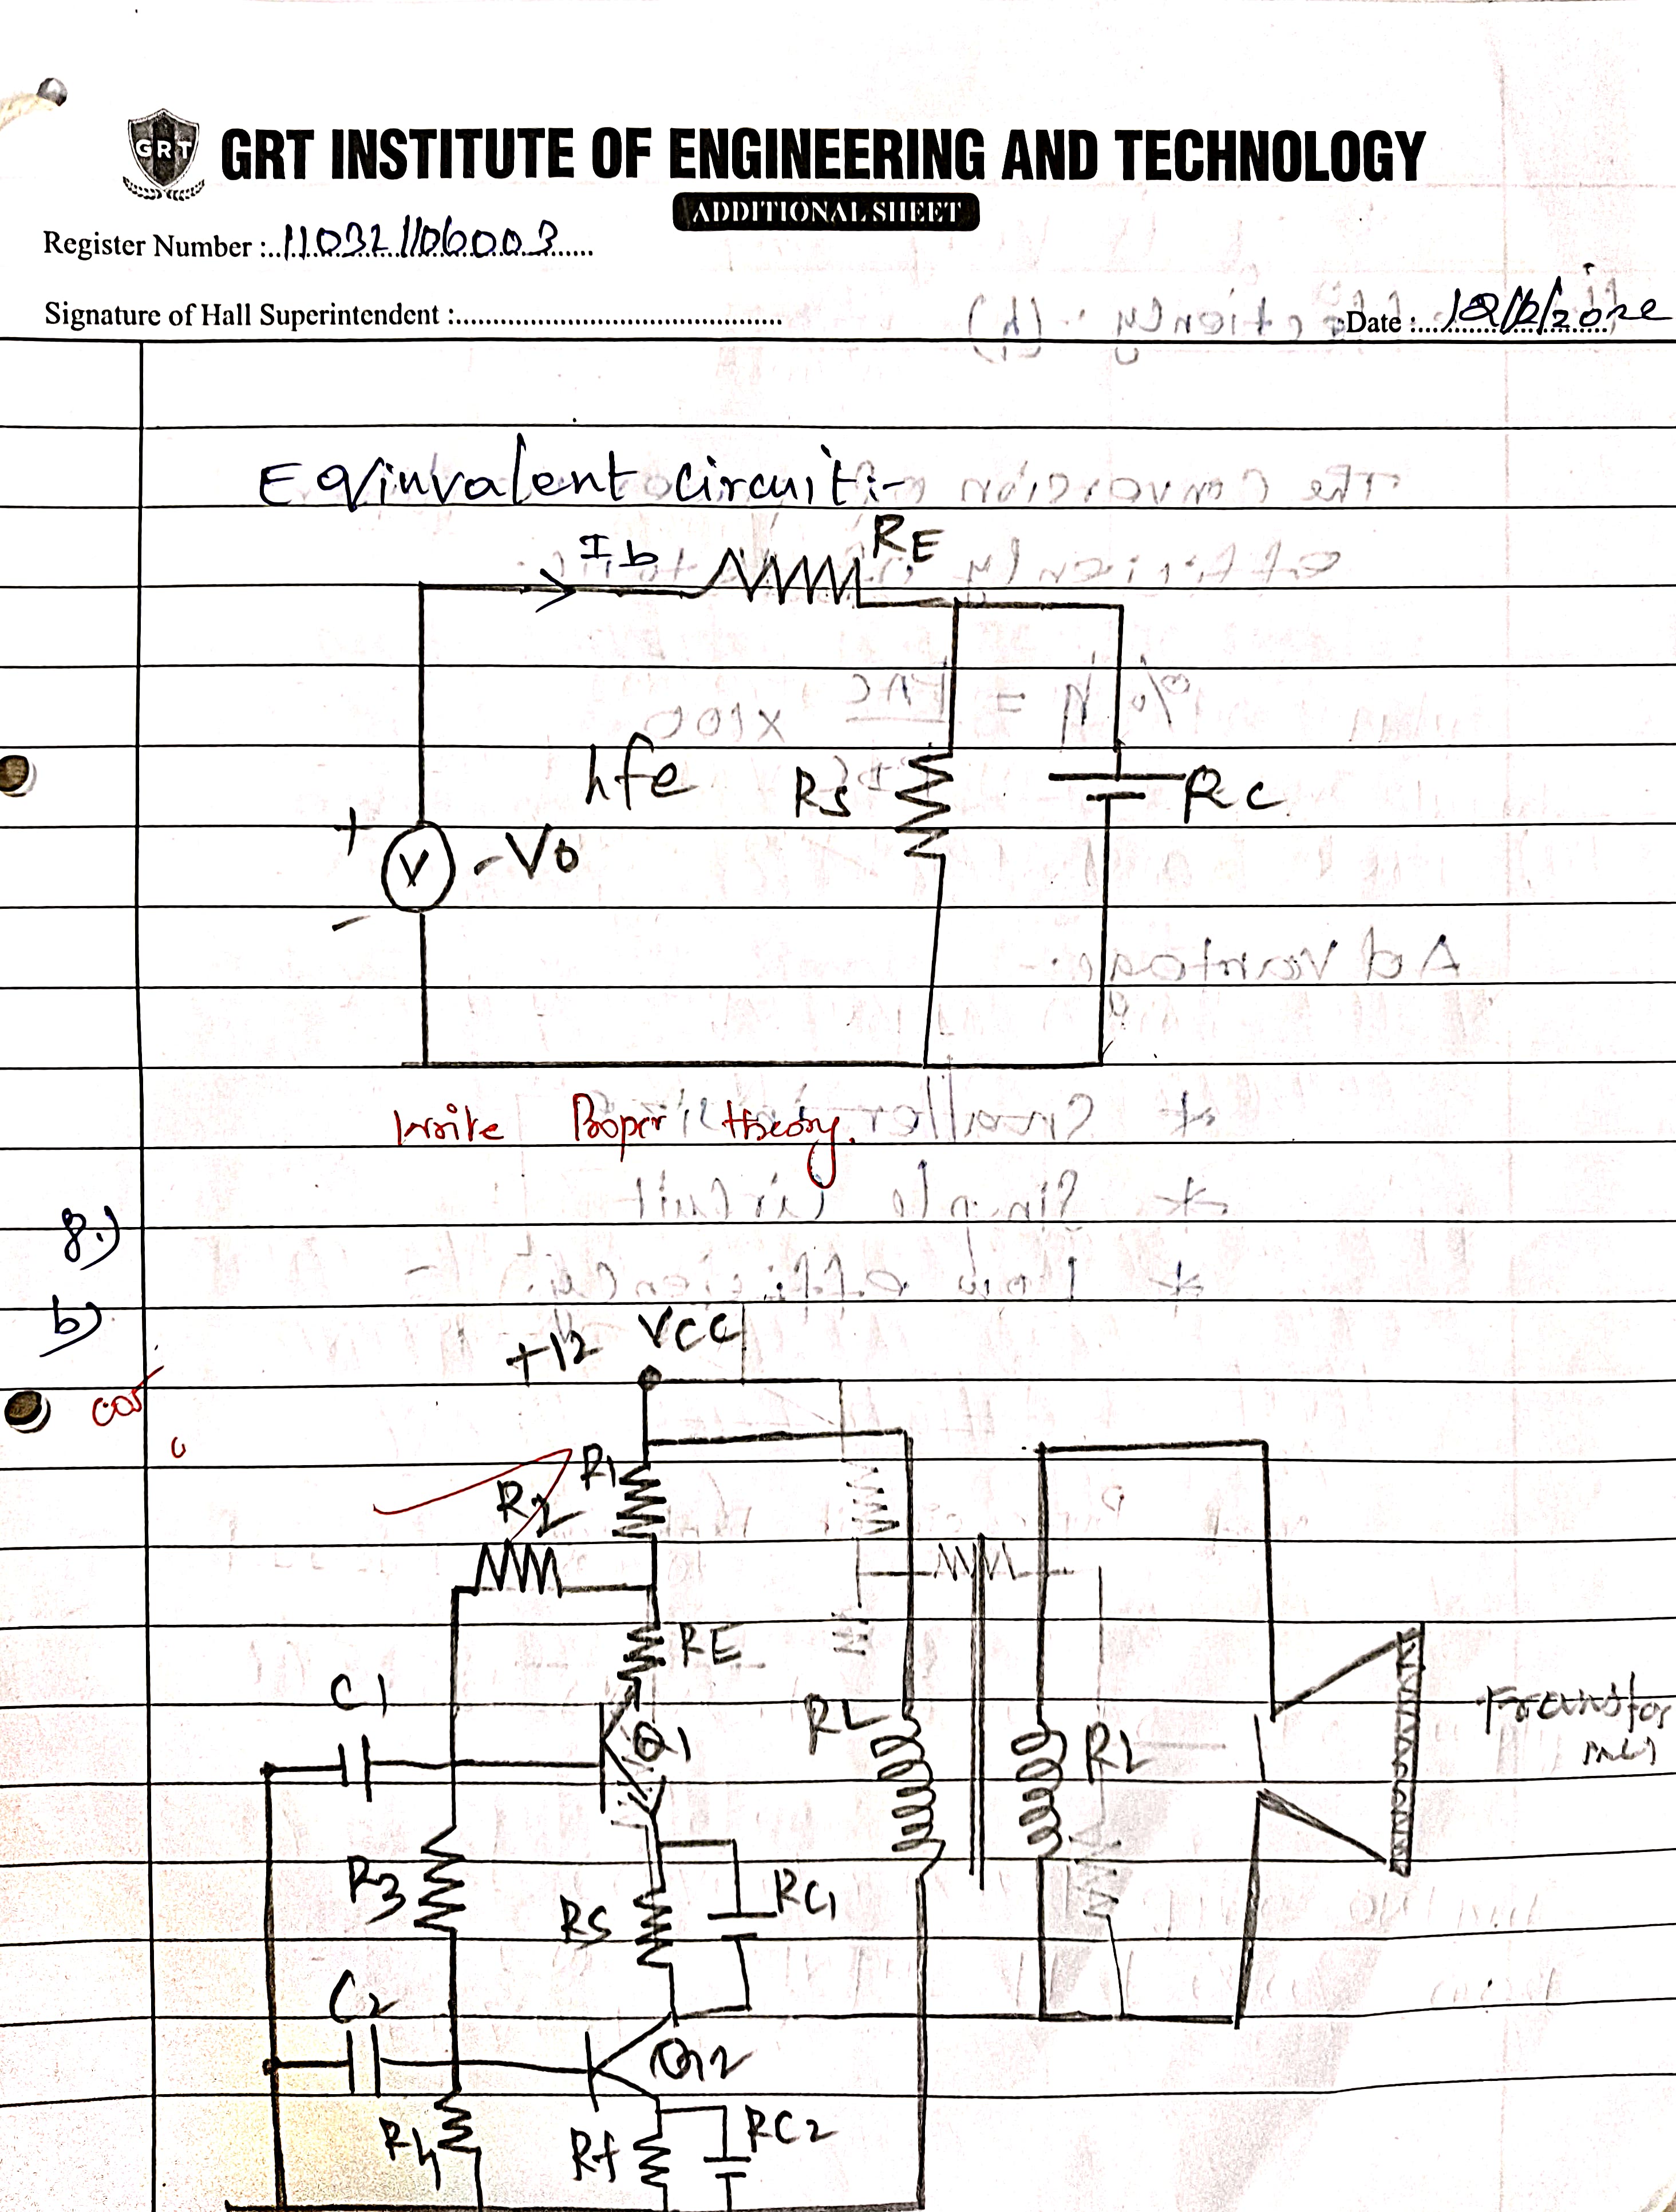 GRT
GRT INSTITUTE OF ENGINEERING AND TECHNOLOGY
ADDITIONAL SHEET
Register Number : 110321106003
Signature of Hall Superintendent :
Date :
Eqinvalent circuit:-
Ib
RE
hfe
Rs
RC
+
V
-Vo
-
Write Proper theory.
8.)
b)
+12 VCC
R1
R2
RE
C1
Q1
RL
RL
R3
RS
RC1
C2
Q2
R4
Rf
RC2